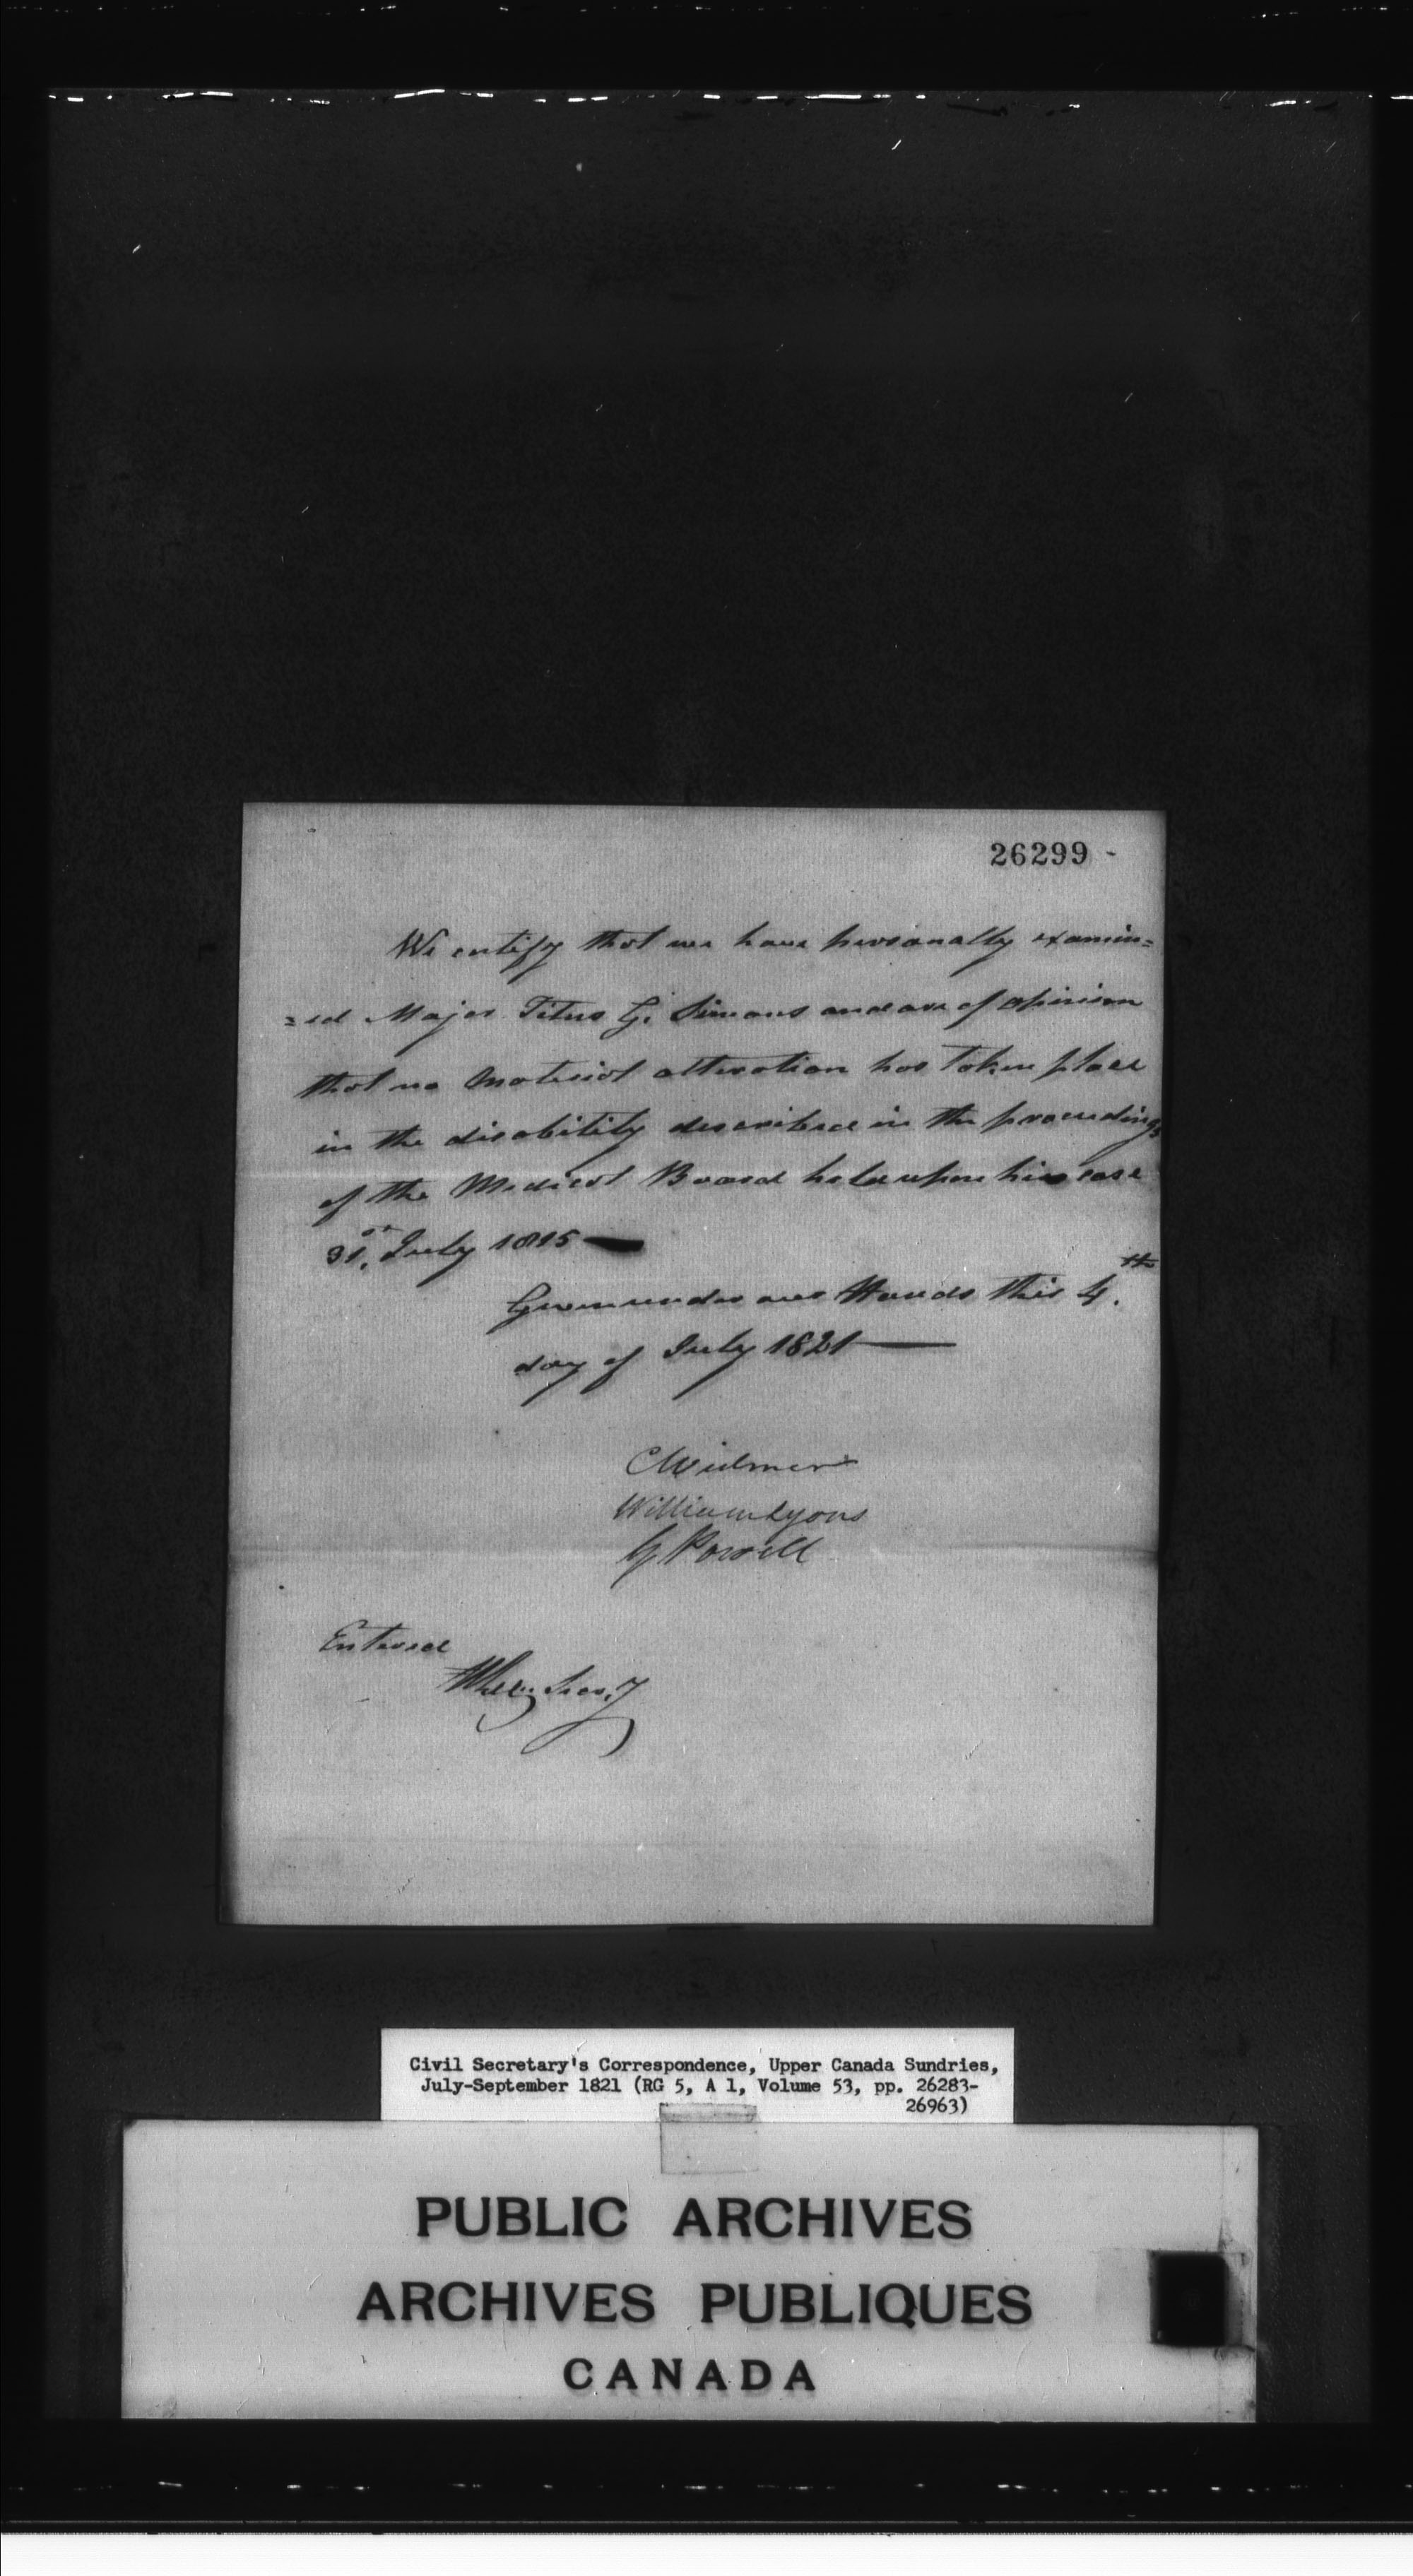 26299 -
We certify that we have personally examin=
=ed Major Titus G. Simons and are of opinion
that no Material alteration has taken place
in the disability described in the proceedings
of the Medical Board held upon his case
31st July 1815
Given under our Hands this 4th
day of July 1821
C Widmer
William Lyons
G Powell
Entered
Secy
Civil Secretary's Correspondence, Upper Canada Sundries,
July-September 1821 (RG 5, A 1, Volume 53, pp. 26283-
26963)
PUBLIC ARCHIVES
ARCHIVES PUBLIQUES
CANADA